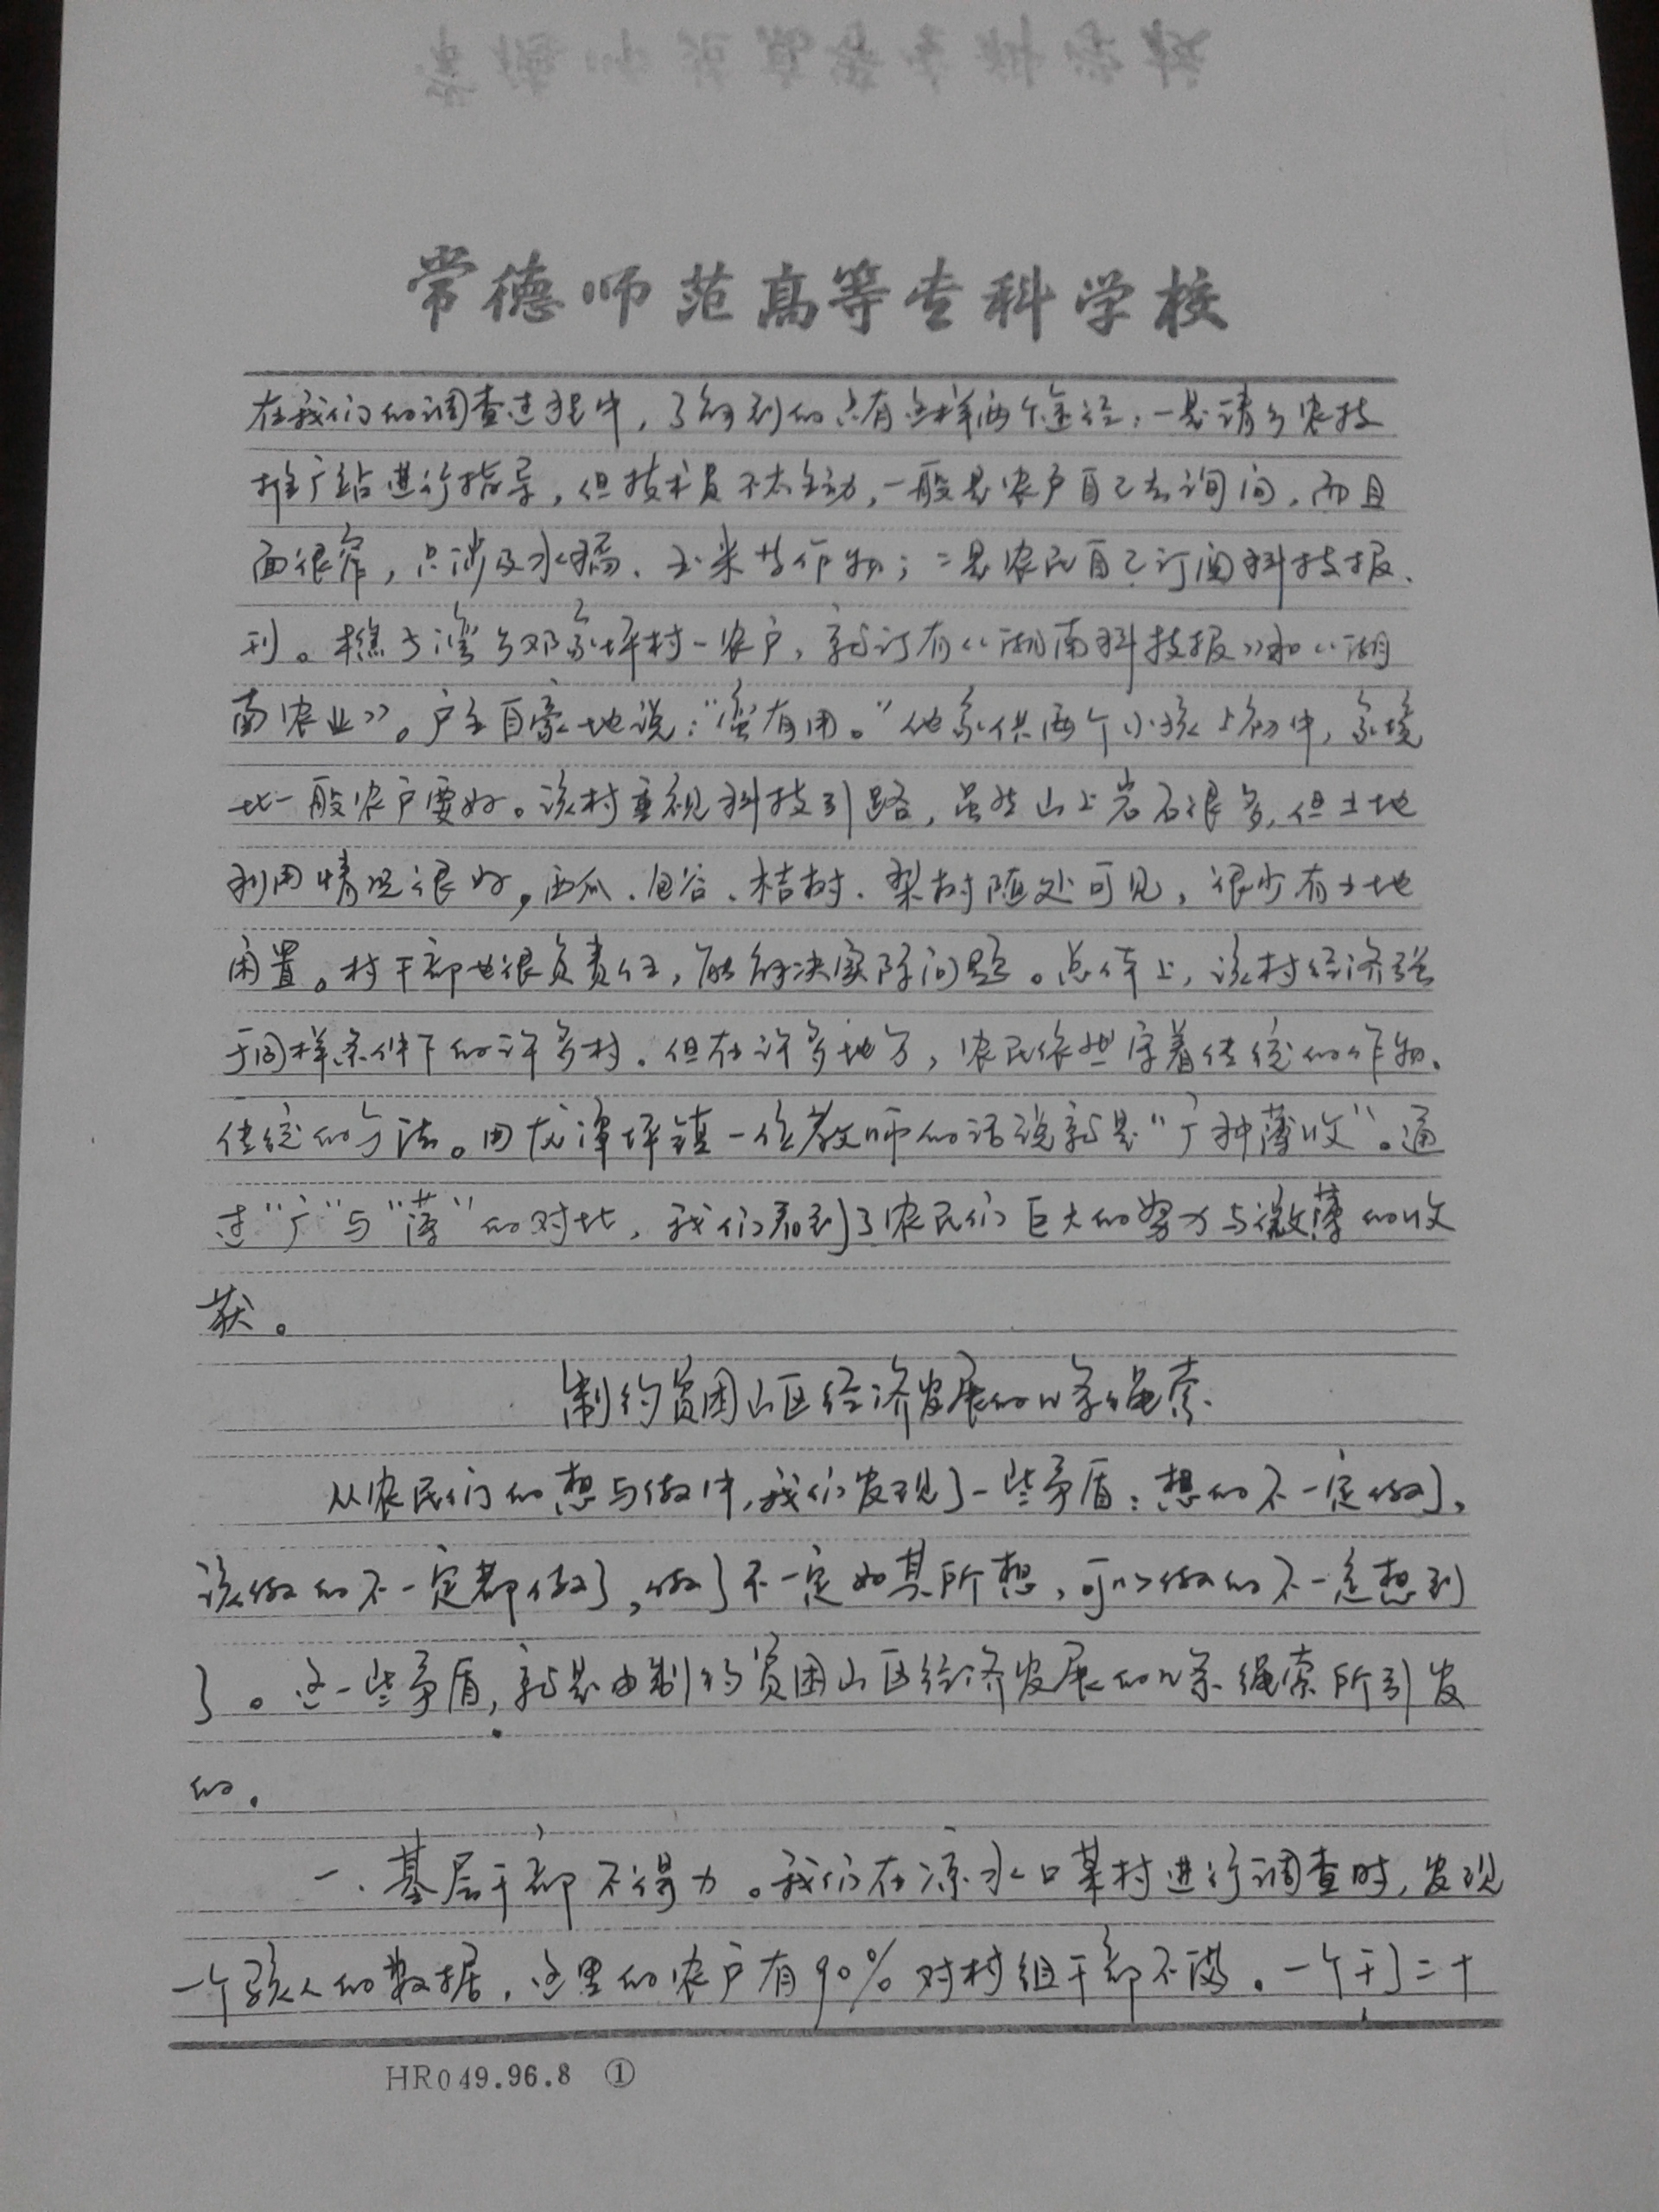 常德师范高等专科学校
在我们的调查过程中，了解到的只有这样两个途径：一是请乡农技
推广站进行指导，但技术员不太主动，一般是农户自己去询问，而且
面很窄，只涉及水稻、玉米等作物；二是农民自己订阅科技报、
刊。樵子湾乡邓家坪村一农户，就订有《湖南科技报》和《湖
南农业》。户主自豪地说：“蛮有用。”他家供两个小孩上初中，家境
比一般农户要好。该村重视科技引路，虽然山上岩石很多，但土地
利用情况很好，西瓜、包谷、桔树、梨树随处可见，很少有土地
闲置。村干部也很负责任，能解决实际问题。总体上，该村经济强
于同样条件下的许多村。但在许多地方，农民依然守着传统的作物、
传统的方法。用龙潭坪镇一位教师的话说就是“广种薄收”。通
过“广”与“薄”的对比，我们看到了农民们巨大的努力与微薄的收
获。
制约贫困山区经济发展的几条绳索
从农民们的想与做中，我们发现了一些矛盾：想的不一定做了，
该做的不一定都做了，做了不一定如其所想，可以做的不一定想到
了。这一些矛盾，就是由制约贫困山区经济发展的几条绳索所引发
的。
一、基层干部不得力。我们在凉水口某村进行调查时，发现
一个骇人的数据，这里的农户有90%对村组干部不满。一个干了二十
HR049.96.8 ①